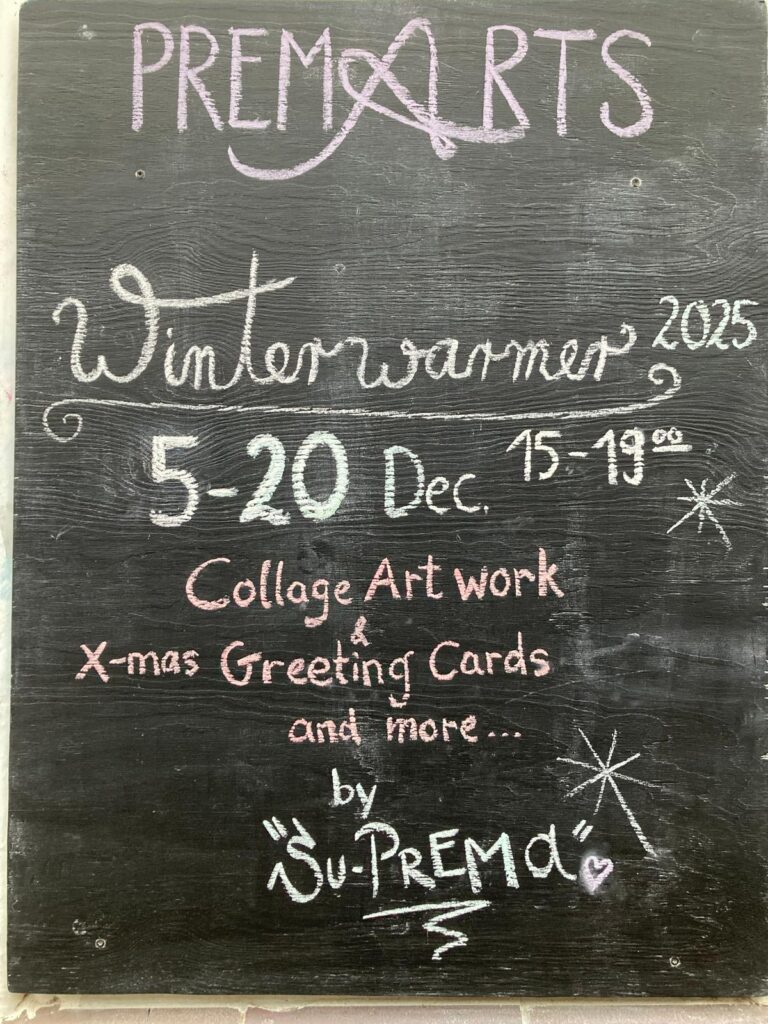 PREMARTS
Winterwarmer 2025
5-20 Dec. 15-19⁰⁰
Collage Art work
&
X-mas Greeting Cards
and more...
by
"Su-PREMa"